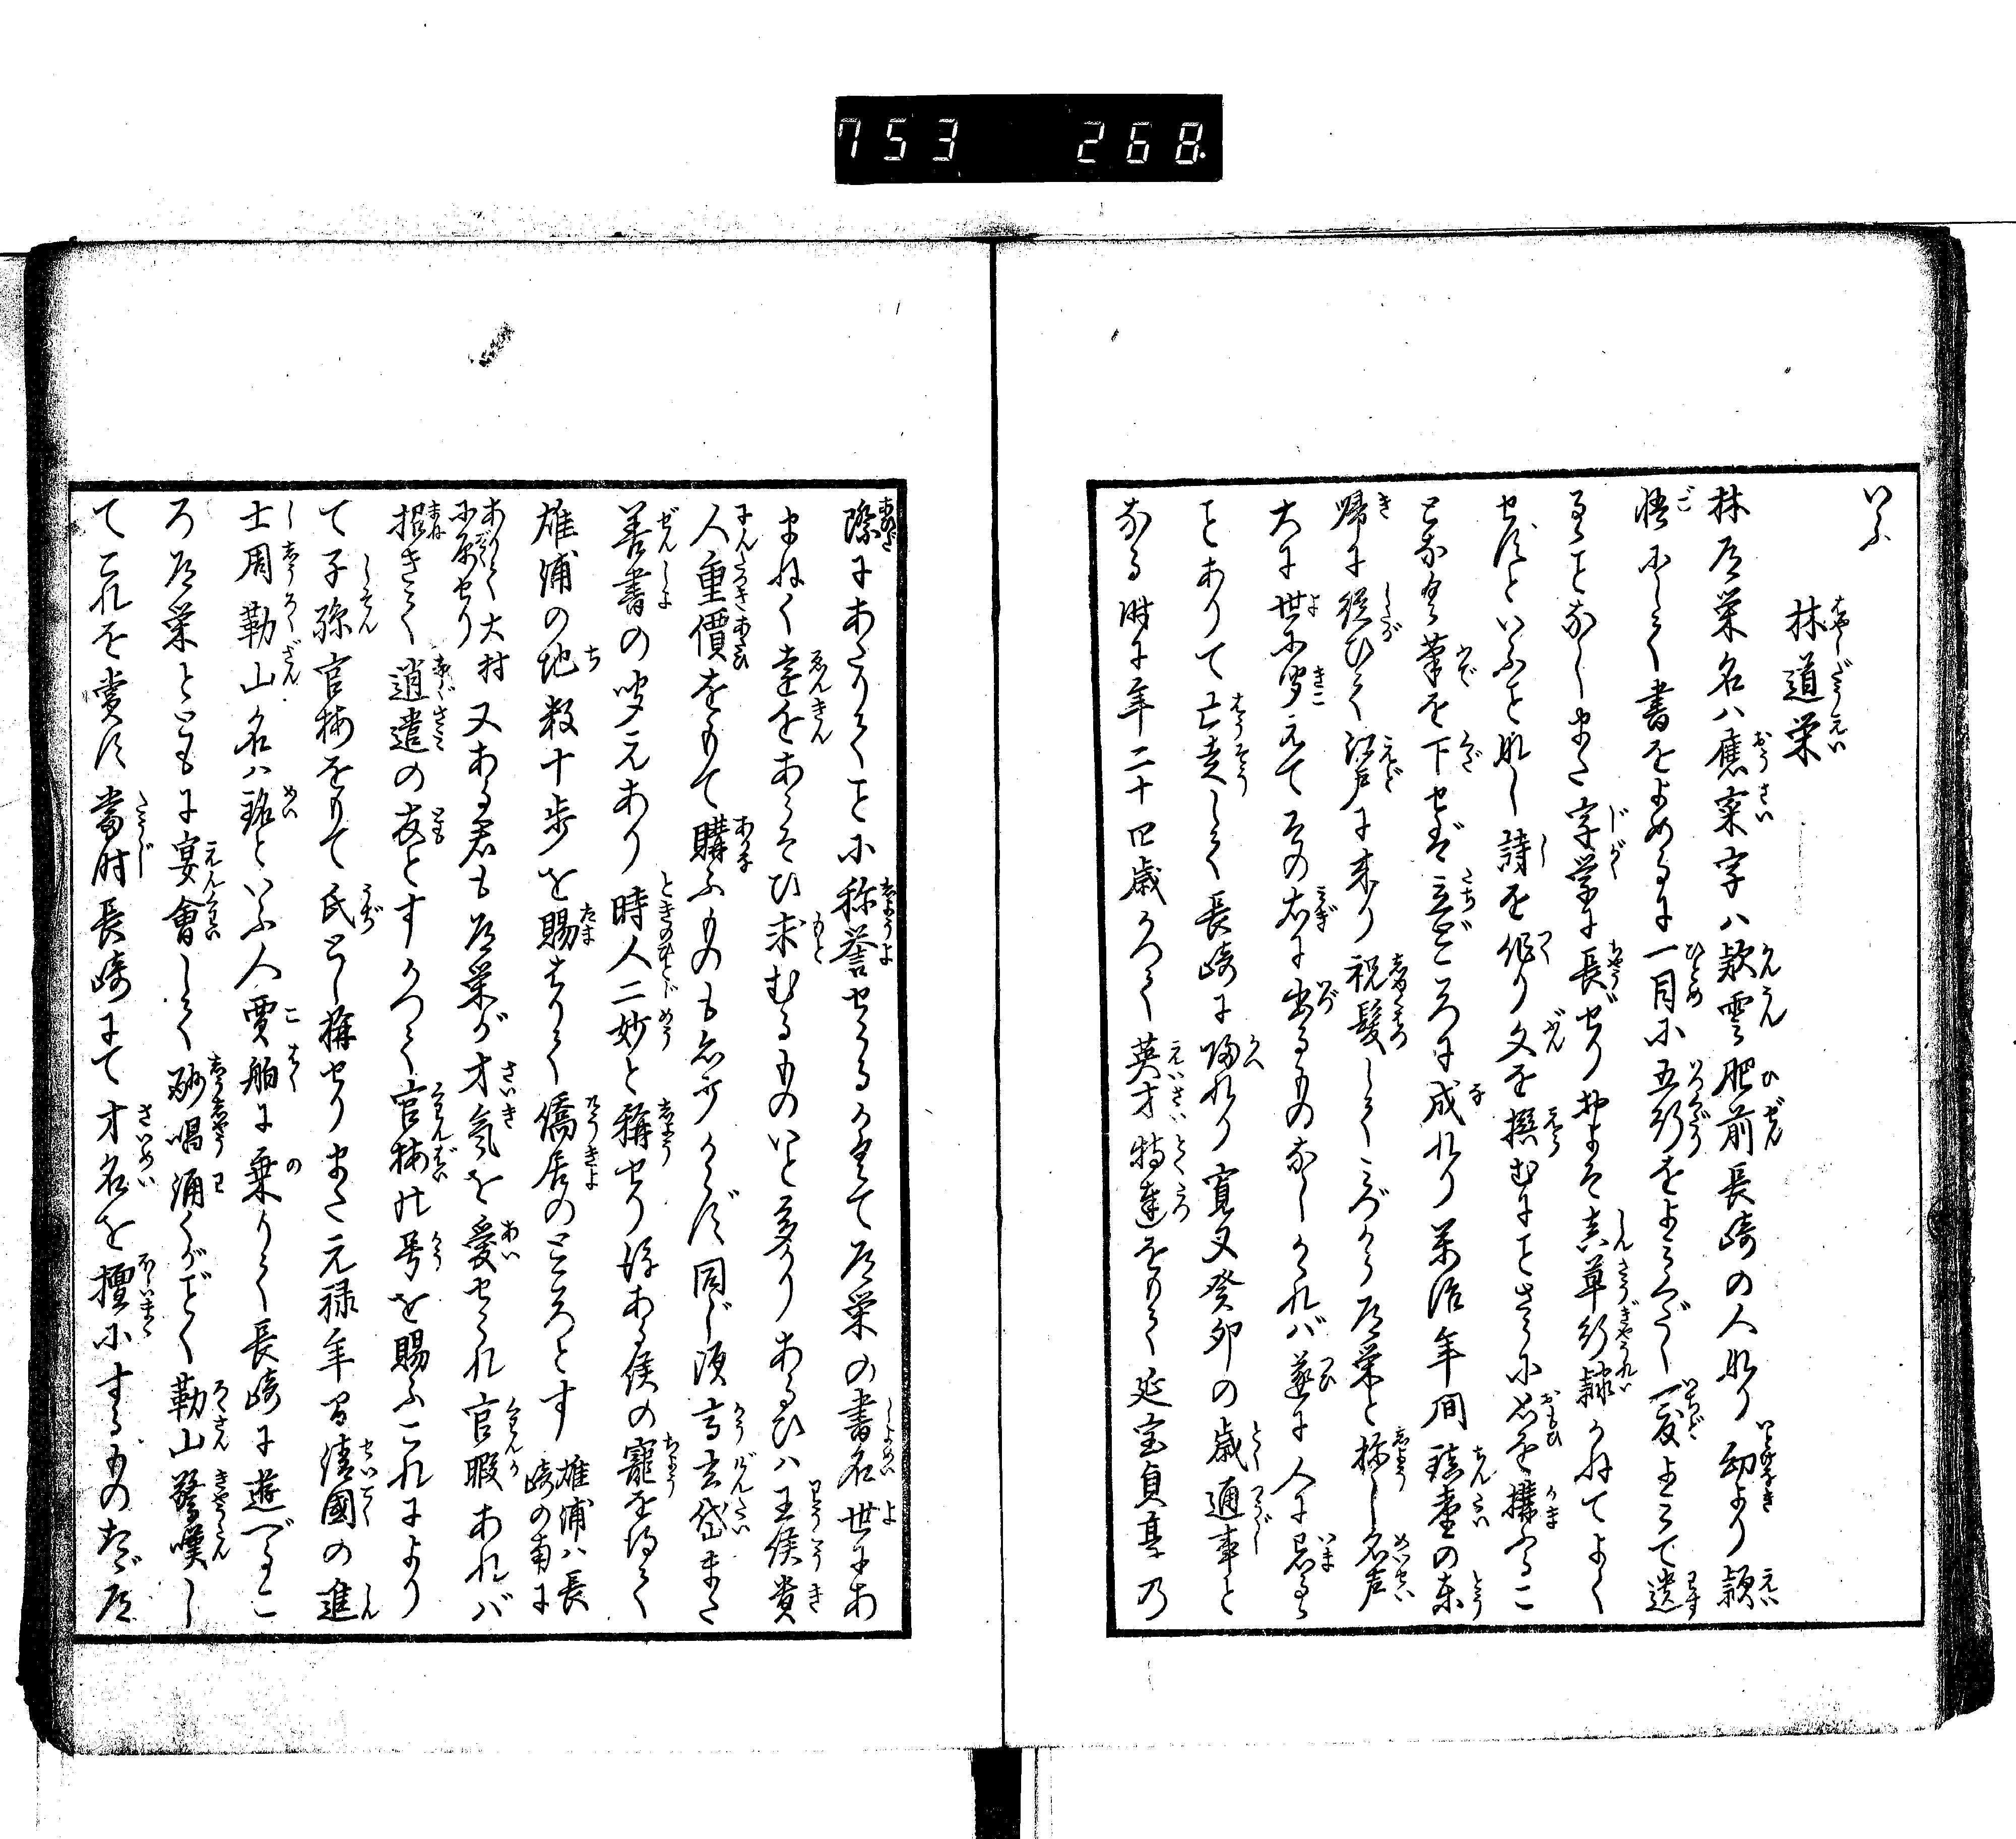 753 268
いふ
林道栄
林道栄名ハ應寀字ハ欵雲肥前長崎の人なり幼より頴
悟にして書をよめるに一目に五行をよみくだし一度よミて遺
るゝことなしまた字学に長ぜりおよそ真草行隷かねてよく
せずといふことなし詩を作り文を撰むにことさらに思を構ふるこ
となく筆を下せば立どころに成れり萬治年間鎮臺の東
帰に従ひて江戸に来り祝髪してミづから道栄と称し名声
大に世に聞えてその右に出るものなしかれバ遂に人に忌るゝ
ことありて亡走して長崎に帰れり寛文癸卯の歳通事と
なる時に年二十四歳かつて英才特達をもて延宝貞享乃
際にあたりてことに称誉せらるかくて道栄の書名世にあ
まねく遠近あらそひ求むるものいと多かりあるひハ王侯貴
人重價をもて購ふものも少からず同じ頃高玄岱また
善書の聞えあり時人二妙と稱せり後ある侯の寵を得て
雄浦の地数十歩を賜はりて僑居のところとす雄浦ハ長崎の南に
ありて大村に属せり又ある君も道栄が才氣を愛せられ官暇あれバ
招きて逍遣の友とすかつて官梅の号を賜ふこれにより
て子孫官梅をもて氏とし稱せりまた元禄年間清國の進
士周勒山名ハ銘といふ人賈舶に乗りて長崎に遊べるこ
ろ道栄とともに宴會して酬唱涌くがごとく勒山驚嘆し
てこれを賞す當時長崎にて才名を擅にするものたゞ道